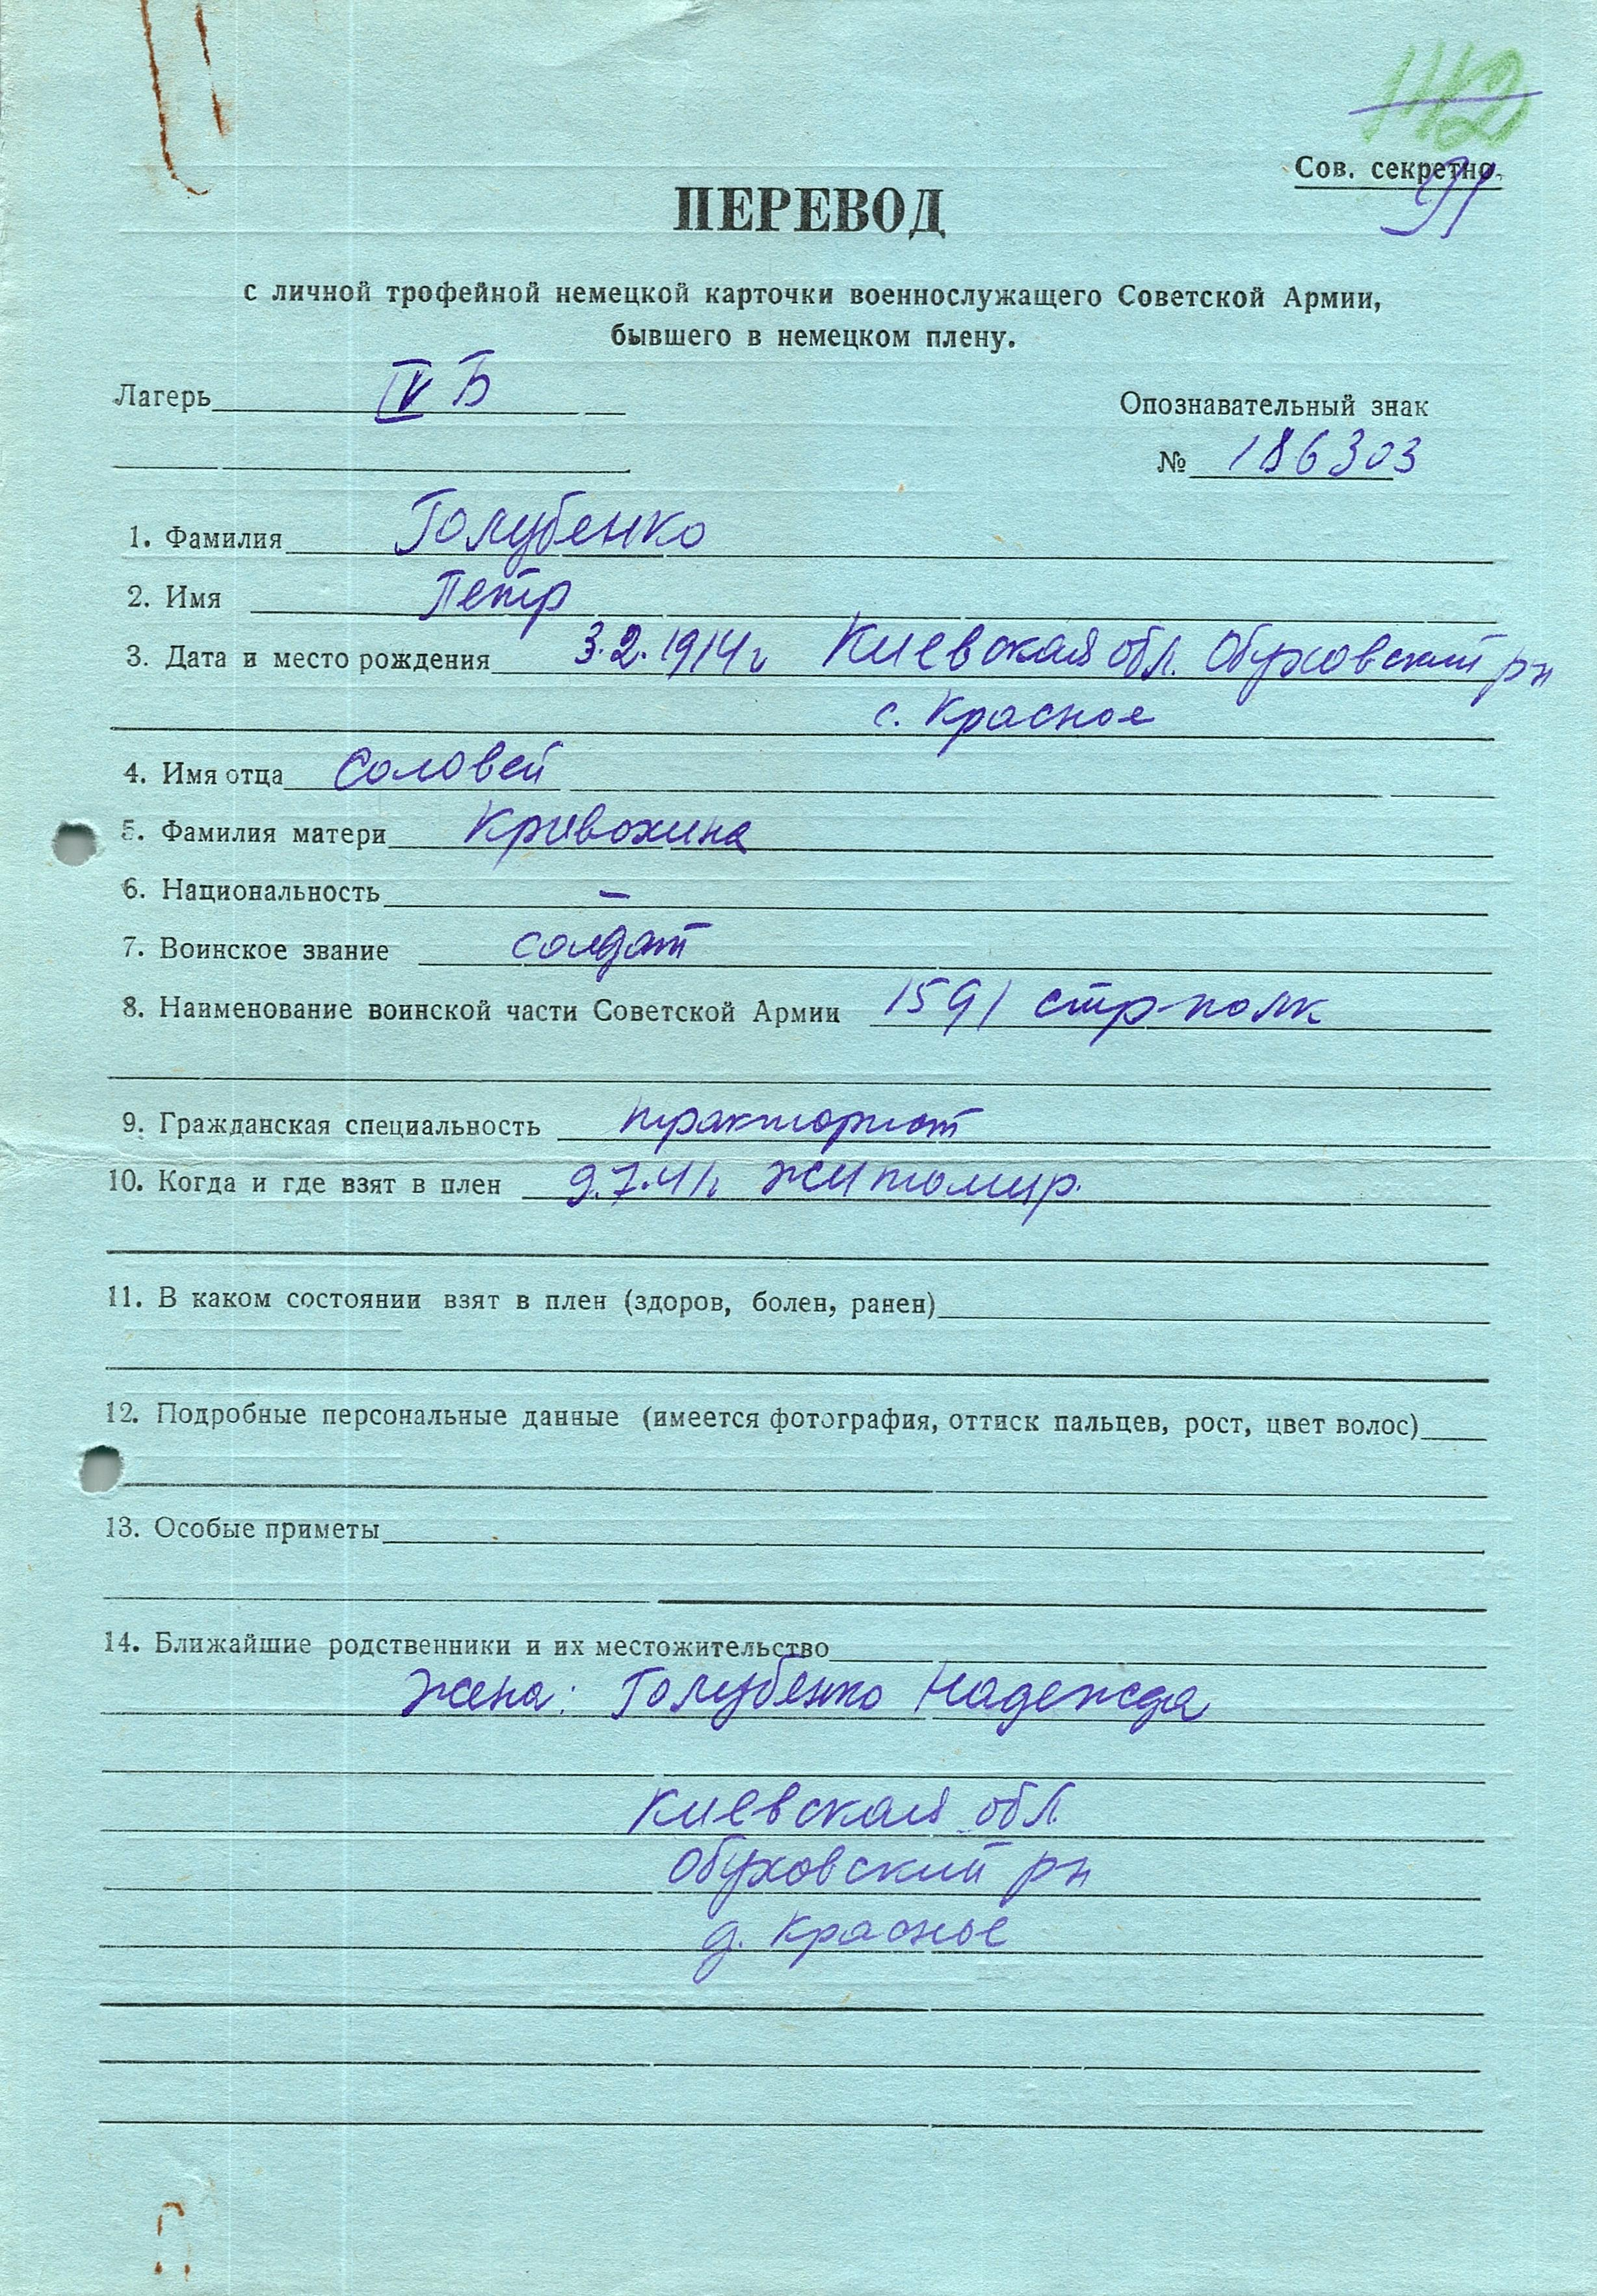 112
Сов. секретно.
91
ПЕРЕВОД
с личной трофейной немецкой карточки военнослужащего Советской Армии,
бывшего в немецком плену.
Лагерь IV Б
Опознавательный знак
№ 186303
1. Фамилия Голубенко
2. Имя Петр
3. Дата и место рождения 3.2.1914 г Киевская обл. Обуховский рн
с. Красное
4. Имя отца Соловей
5. Фамилия матери Кривохина
6. Национальность –
7. Воинское звание солдат
8. Наименование воинской части Советской Армии 1591 стр-полк
9. Гражданская специальность тракторист
10. Когда и где взят в плен 9.7.41г. Житомир.
11. В каком состоянии взят в плен (здоров, болен, ранен)
12. Подробные персональные данные (имеется фотография, оттиск пальцев, рост, цвет волос)
13. Особые приметы
14. Ближайшие родственники и их местожительство
Жена: Голубенко Надежда
Киевская обл.
Обуховский рн
д. Красное